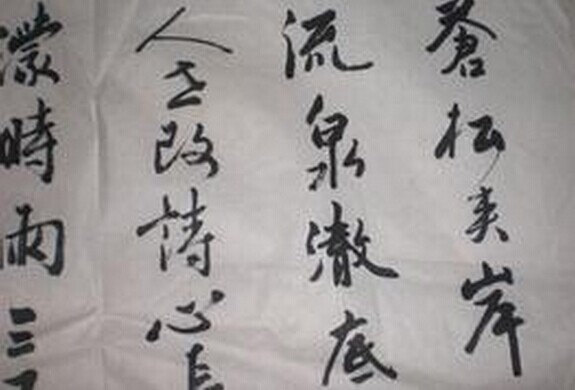 蒼松夾岸
流泉澈底
人在改詩心長
濛時雨三